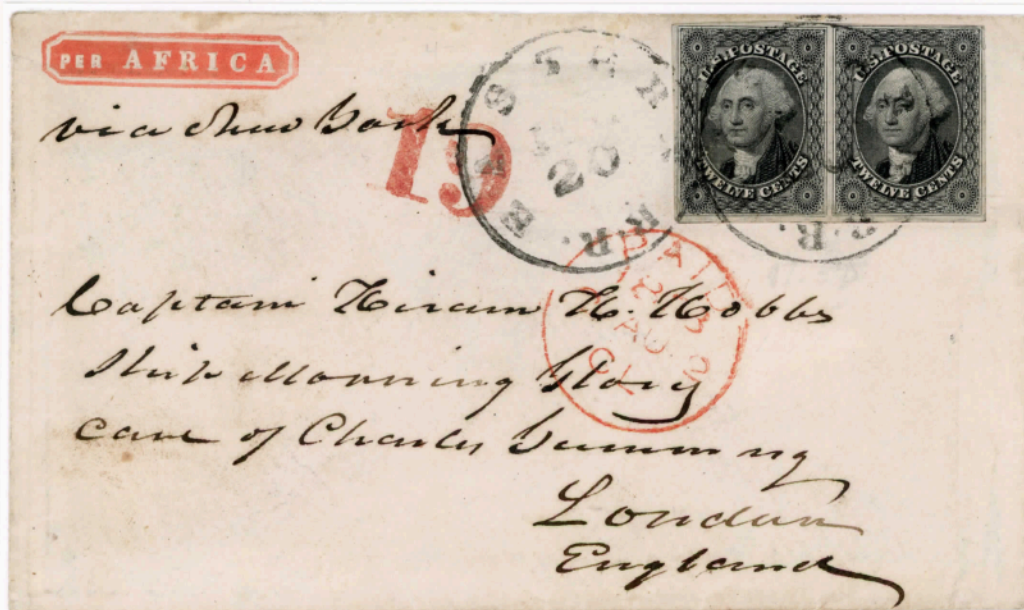 PER AFRICA
via New York
19
EASTERN R.R.
20
U.S. POSTAGE
TWELVE CENTS
U.S. POSTAGE
TWELVE CENTS
R.R.
PAID
AU 2
Captain Hiram H. Hobbs
Ship Morning Glory
care of Charles
London
England